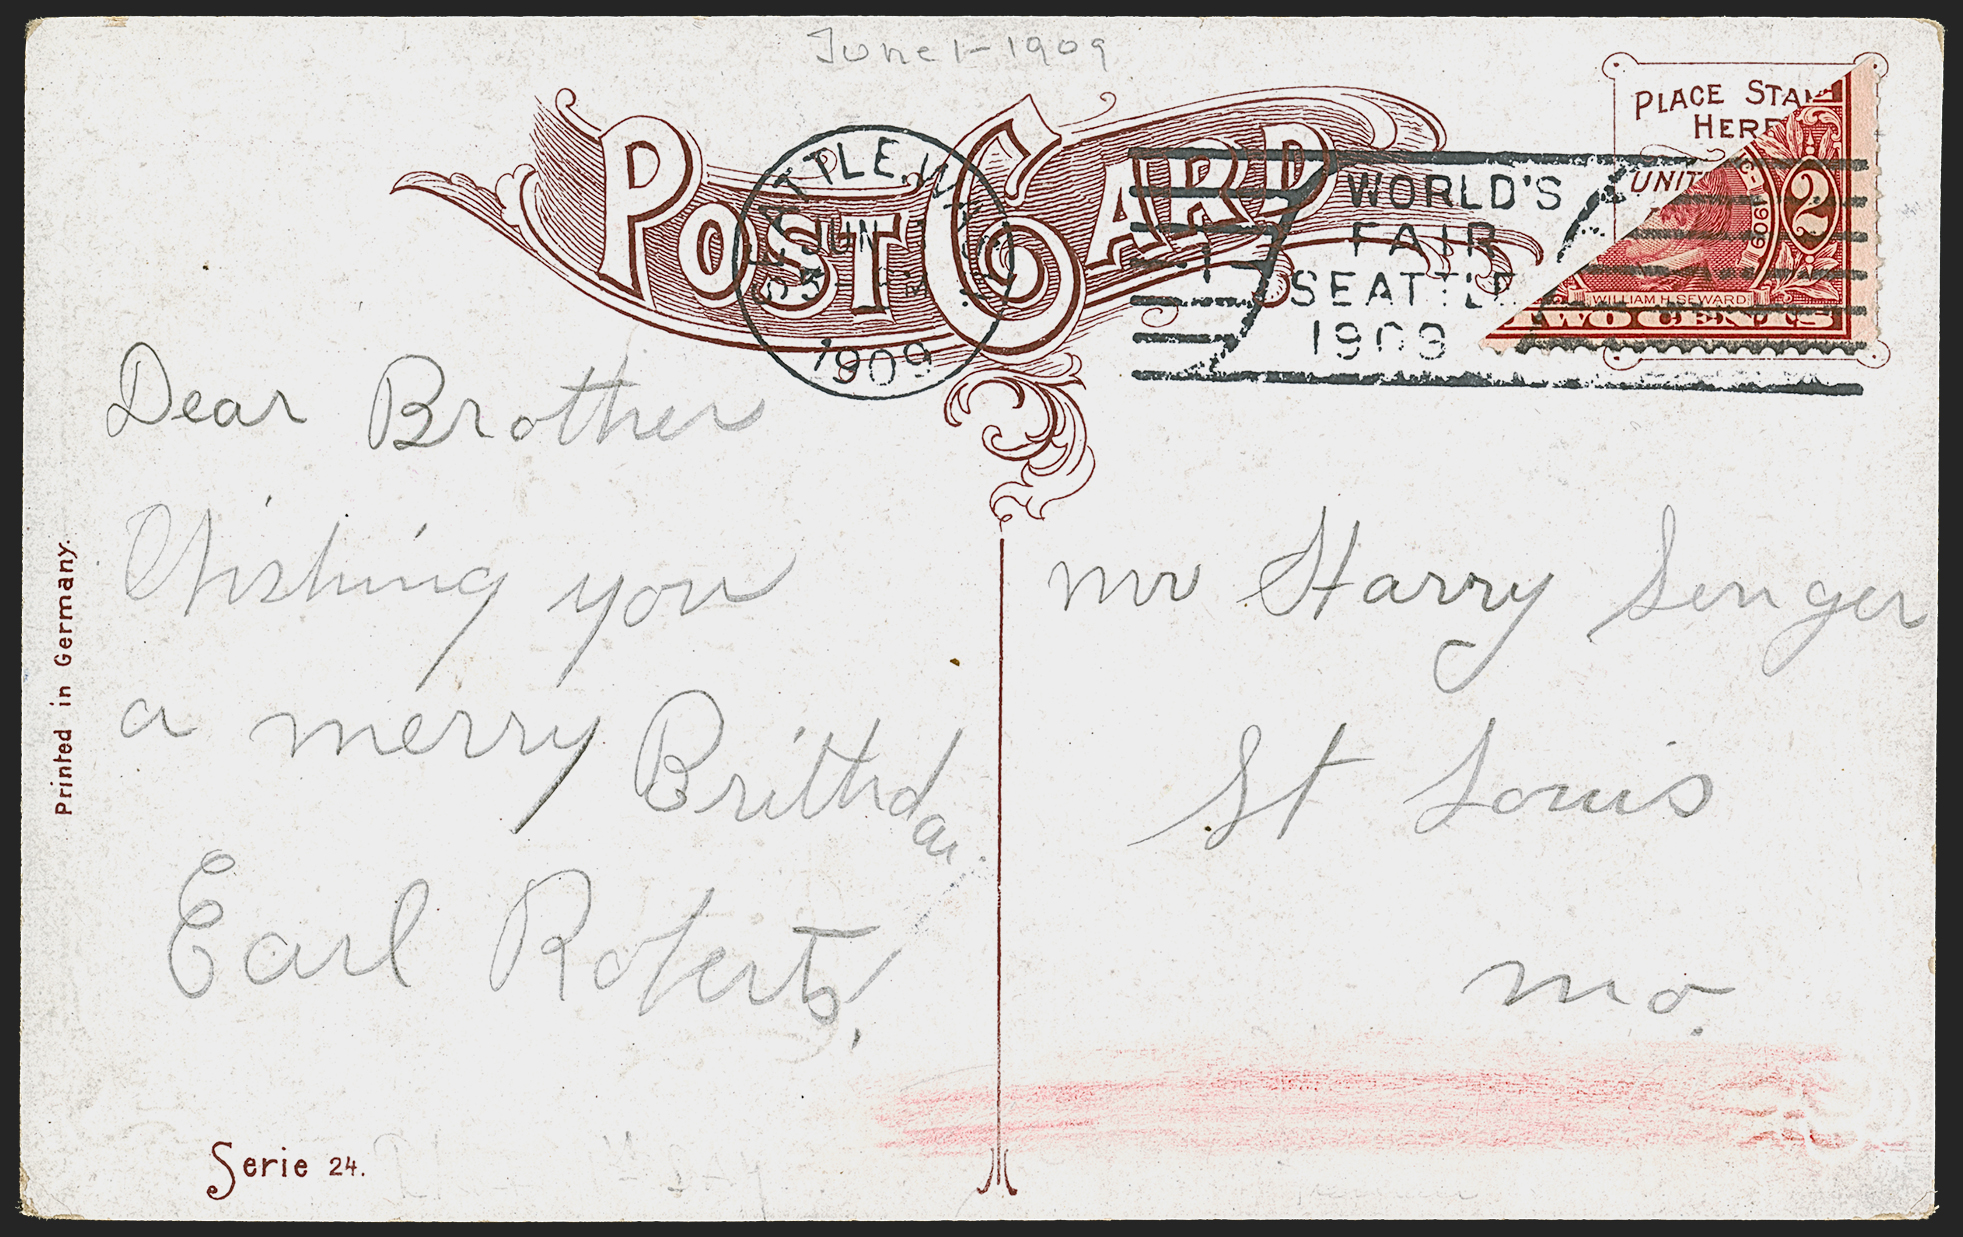 June 1-1909
POST CARD
SEATTLE, WASH.
JUN
1909
WORLD'S
FAIR
SEATTLE
1909
PLACE STAM
HERE
UNIT
1909
2
WILLIAM H. SEWARD
TWO CENTS
Dear Brother
Wishing you
a merry Brithda
Earl Roberts,
mr Harry Senger
St Louis
mo.
Printed in Germany.
Serie 24.